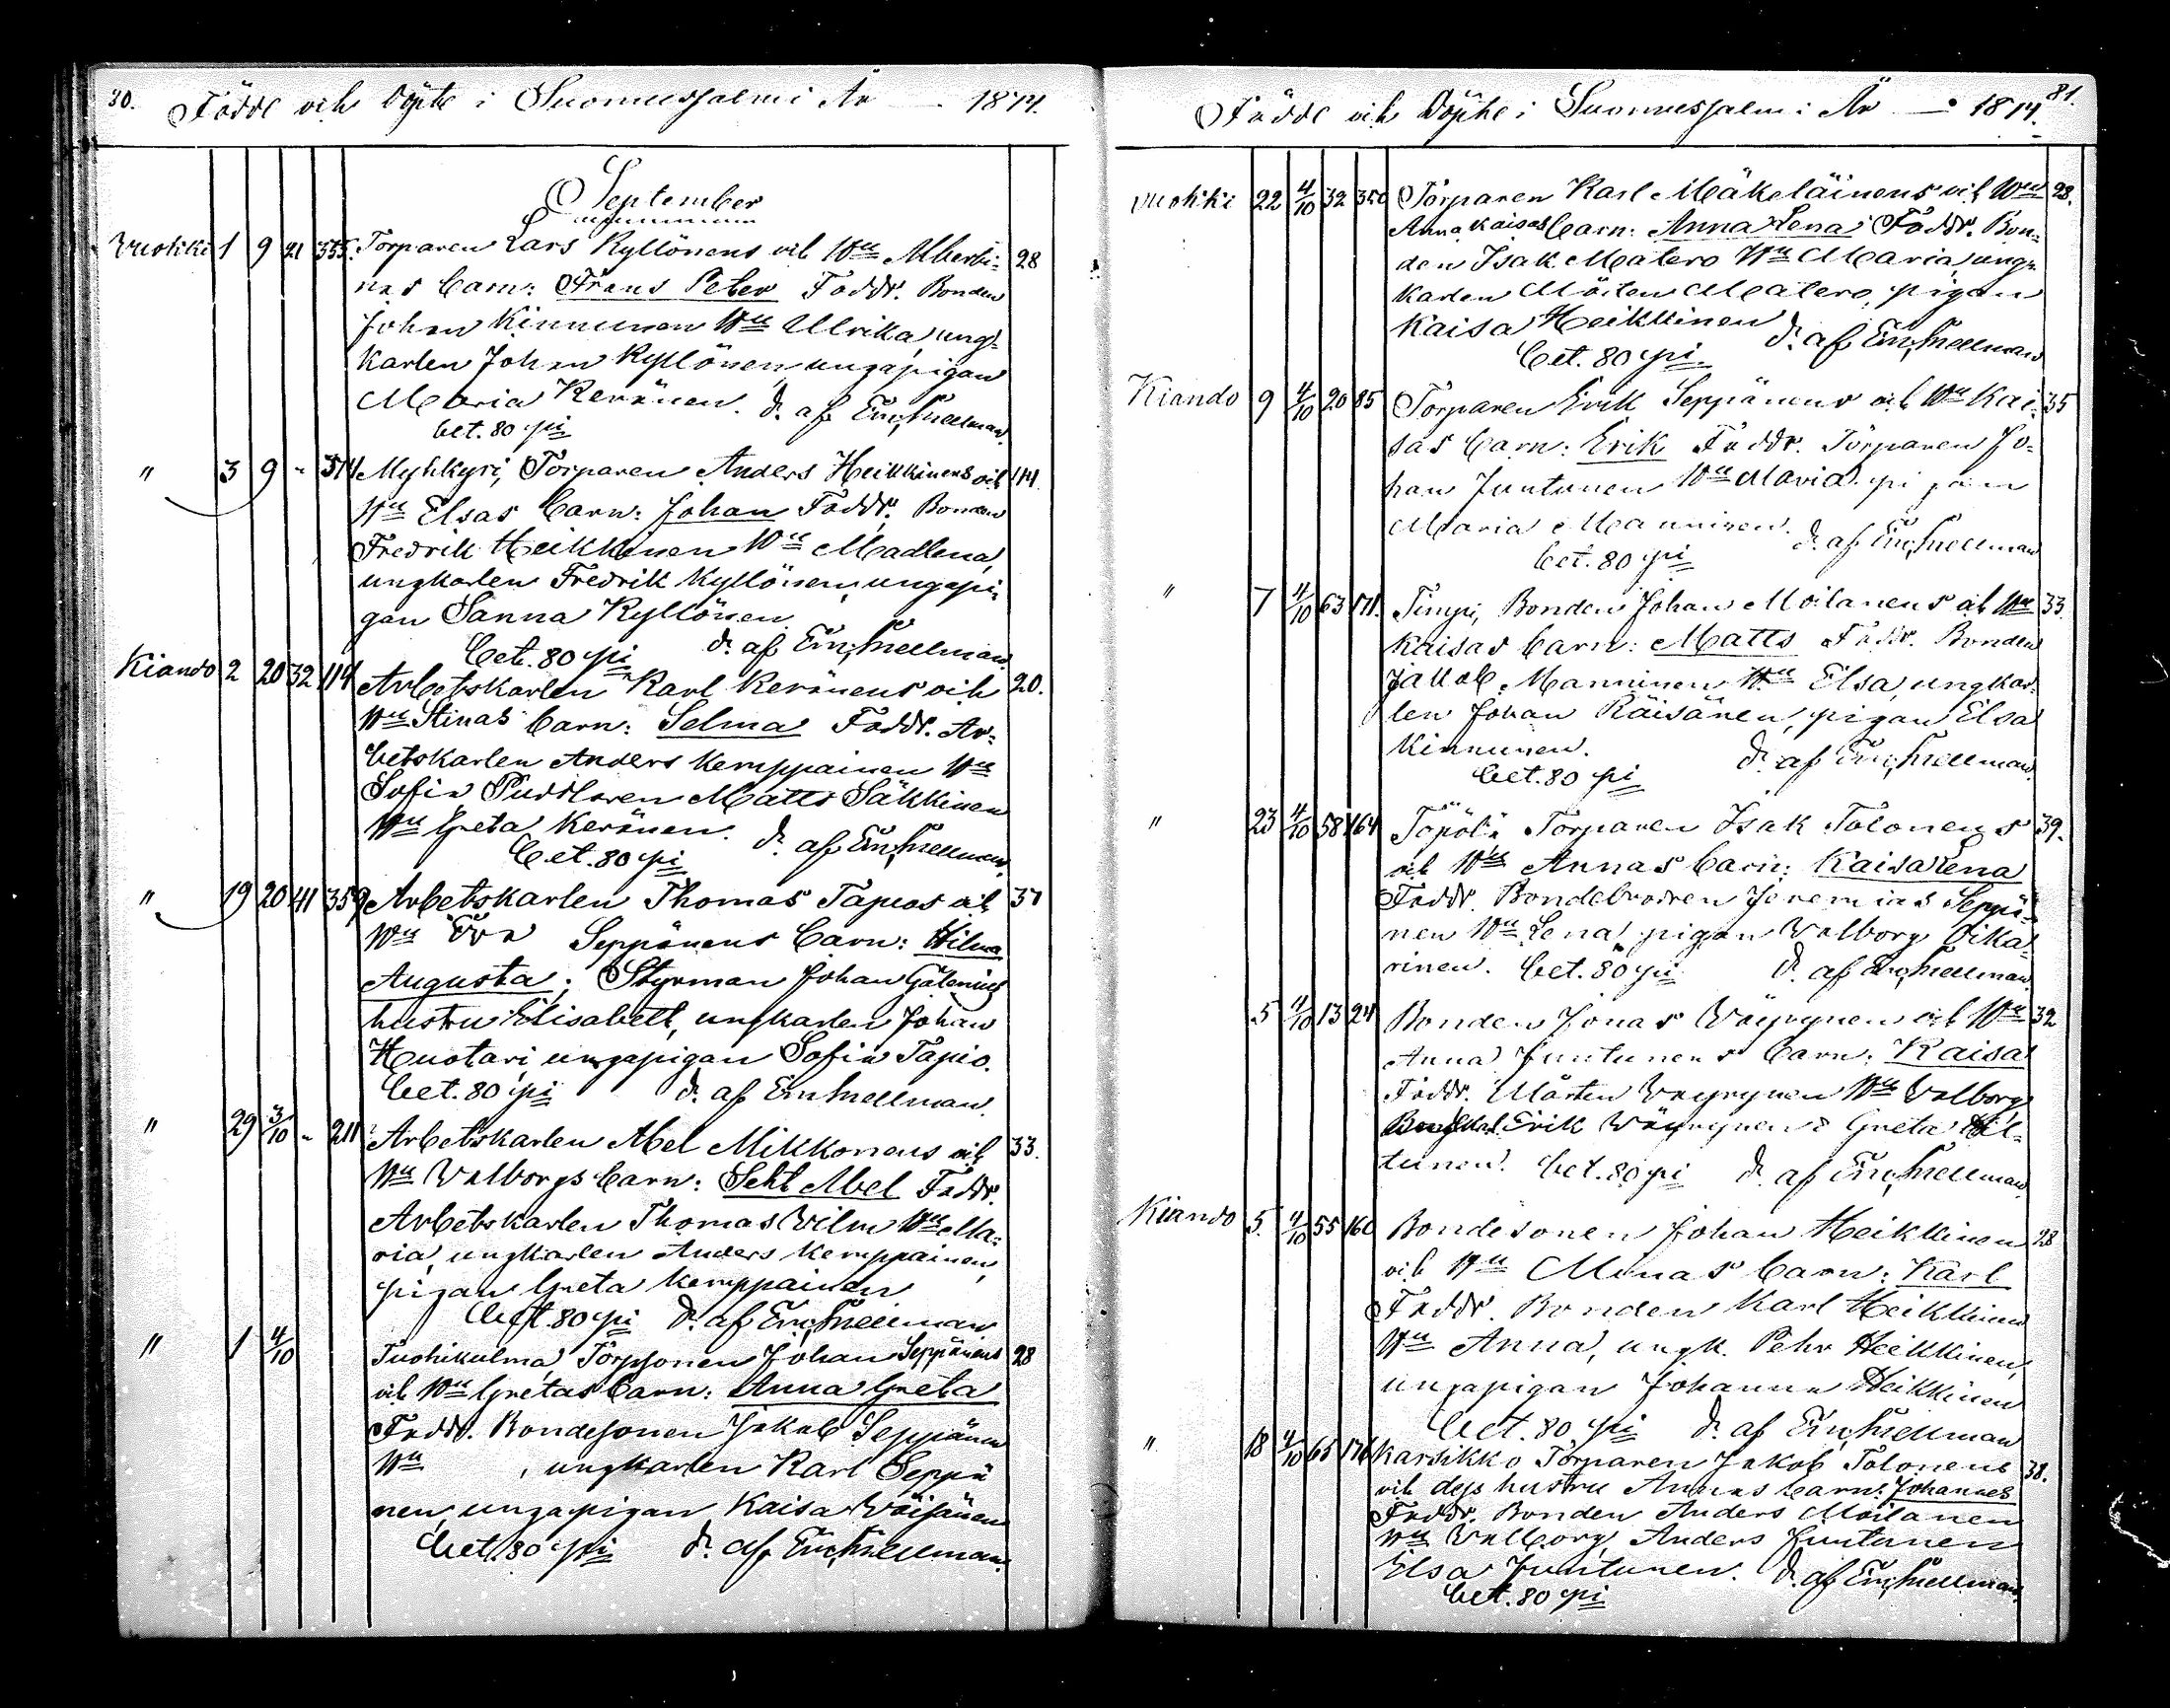 30. Födde och Döpte i Suomussalmi År — 1874.
September
Vuokki 1 9 21 355. Torparen Lars Kyllönens och Hu Alberti- 28
nas barn: Frans Peter Faddr. Bonden
Johan Kinnunen Hu Ulrika, ung-
karlen Johan Kyllönen, ungapigan
Maria Keränen. d. af Em. Snellman.
bet. 80 pi
" 3 9 " 374 Myhkyri, Torparen Anders Heikkinens och 44.
Hu Elsas barn: Johan Faddr. Bonden
Fredrik Heikkinen Hu Madlena,
ungkarlen Fredrik Kyllönen, ungapi-
gan Sanna Kyllönen.
bet. 80 pi d. af Em. Snellman
Kiando 2 20 32 114 Arbetskarlen Karl Keränens och 20.
Hu Stinas barn: Selma Faddr. Ar-
betskarlen Anders Kemppainen Hu
Sofia Matts Säkkinen
Hu Greta Keränen. d. af Em. Snellman.
bet. 80 pi
" 19 20 41 359 Arbetskarlen Thomas Tapios och 37
Hu Eva Seppänens barn: Hilma
Augusta; Styrman Johan Galenius
hustru Elisabett, ungkarlen Johan
Huotari, ungapigan Sofia Tapio.
bet. 80 pi d. af Em. Snellman.
" 29 3/10 " 211 Arbetskarlen Abel Mikkonens och 33.
Hu Valborgs barn: Abel Faddr.
Arbetskarlen Thomas Hu Ma-
ria, ungkarlen Anders Kemppainen,
pigan Greta Kemppainen
bet. 80 pi d. af Em. Snellman
" 1 4/10 Tuohikulma, Torpsonen Johan Seppänens 28
och Hu Gretas barn: Anna Greta
Faddr. Bondesonen Jakob Seppänen
Hu , ungkarlen Karl Seppä
nen, ungapigan Kaisa Väisänen
bet. 80 pi d. af Em. Snellman.
Födde och Döpte i Suomussalmi År — 1874. 81.
Vuokki 22 4/10 32 350 Torparen Karl Mäkeläinens och Hu 28.
Anna Kaisas barn: Anna Lena Faddr. Bon-
den Isak Matero Hu Maria, ung-
karlen Mårten Matero, pigan
Kaisa Heikkinen d. af Em. Snellman
bet. 80 pi
Kiando 9 4/10 20 85 Torparen Erik Seppänens och Hu Kai- 35
sas barn: Erik Faddr. Torparen Jo-
han Juntunen Hu Maria, pigan
Maria Manninen. d. af Em. Snellman
bet. 80 pi
" 7 4/10 63 171. Timpi, Bonden Johan Moilanens och Hu 33.
Kaisas barn: Matts Faddr. Bonden
Jakob Manninen Hu Elsa, ungkar-
len Johan Räisänen, pigan Elsa
Kinnunen. d. af Em. Snellman
bet. 80 pi
" 23 4/10 58 164 Töpölä Torparen Isak Tolonens 39.
och Hu Annas barn: Kaisa Lena
Faddr. Bondebrodren Jeremias Seppä-
nen Hu Lena, pigan Valborg Oika-
rinen. bet. 80 pi d. af Em. Snellman
5 4/10 13 24 Bonden Jonas Väyrynen och Hu 32
Anna Juntunens barn: Kaisa
Faddr. Mårten Väyrynen Hu Valborg
Erik Väyrynen & Greta Hil-
tunen. bet. 80 pi d. af Em. Snellman
Kiando 5. 4/10 55 160 Bondesonen Johan Heikkinen 28
och Hu Minas barn: Karl
Faddr. Bonden Karl Heikkinen
Hu Anna, ungk. Pehr Heikkinen,
ungapigan Johanna Heikkinen
bet. 80 pi d. af Em. Snellman
" 18 4/10 65 176 Karsikko Torparen Jakob Tolonens 38.
och dess hustru Annas barn: Johannes
Faddr. Bonden Anders Moilanen
Hu Valborg, Anders Juntunen
Elsa Juntunen. d. af Em. Snellman.
bet. 80 pi